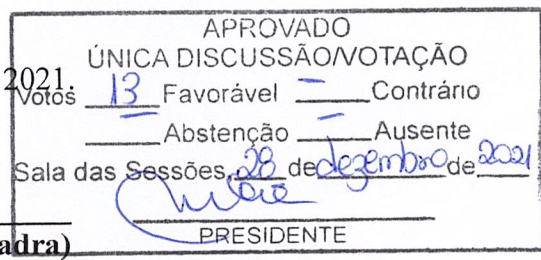 APROVADO
ÚNICA DISCUSSÃO/VOTAÇÃO
2021.
Votos 13 Favorável — Contrário
— Abstenção — Ausente
Sala das Sessões, 28 de dezembro de 2021
PRESIDENTE
adra)